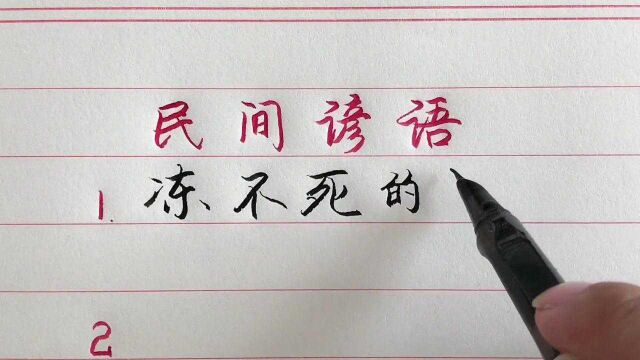 民间谚语
1. 冻不死的
2